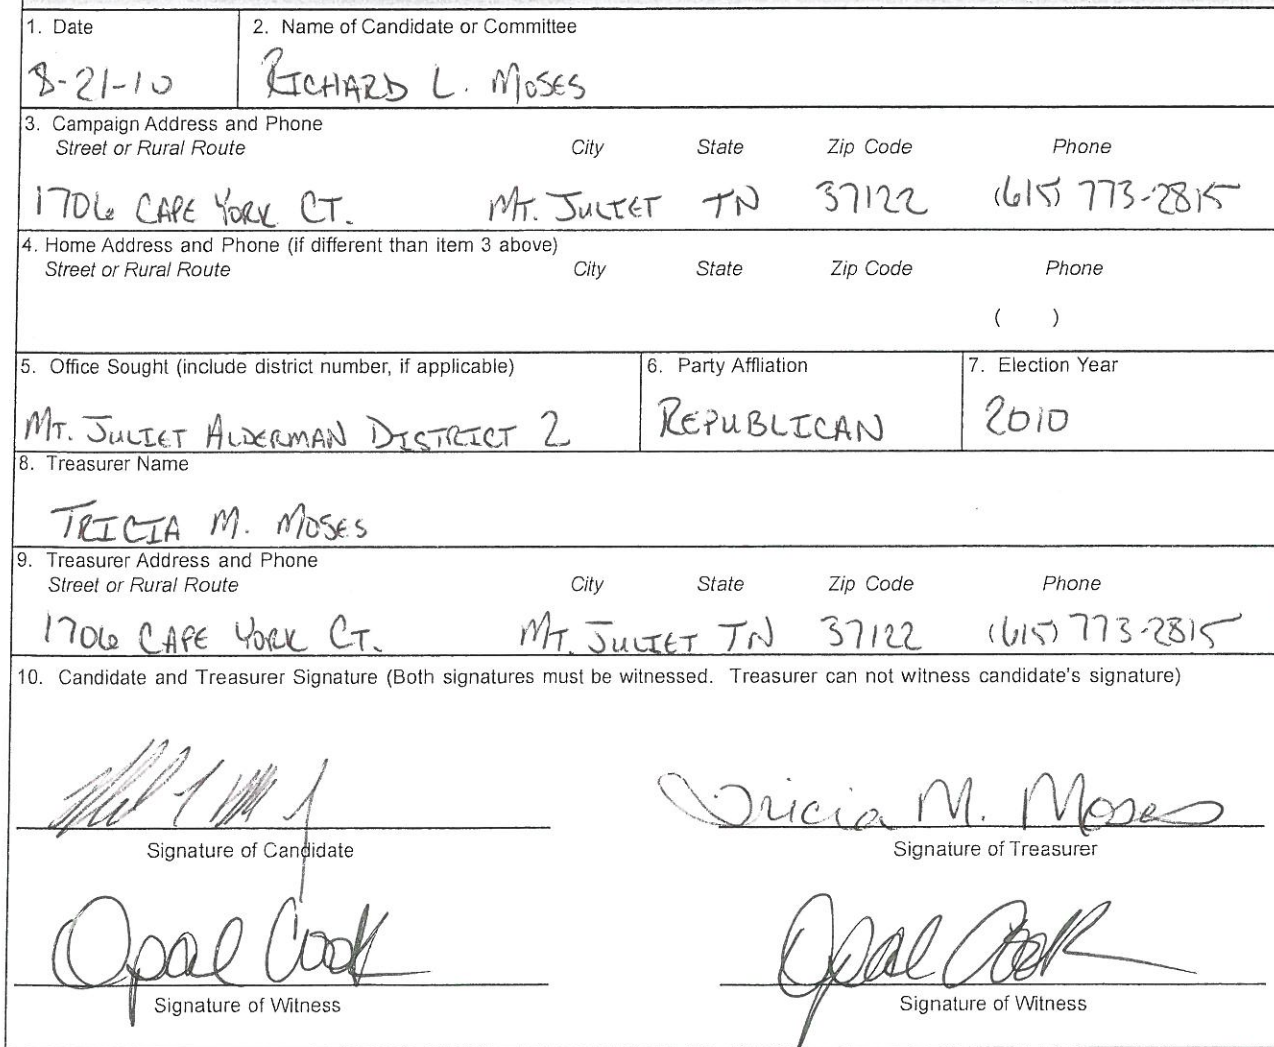 1. Date
2. Name of Candidate or Committee
8-21-10
RICHARD L. MOSES
3. Campaign Address and Phone
Street or Rural Route City State Zip Code Phone
1706 CAPE YORK CT. MT. JULIET TN 37122 (615) 773-2815
4. Home Address and Phone (if different than item 3 above)
Street or Rural Route City State Zip Code Phone
( )
5. Office Sought (include district number, if applicable)
6. Party Affliation
7. Election Year
MT. JULIET ALDERMAN DISTRICT 2
REPUBLICAN
2010
8. Treasurer Name
TRICIA M. MOSES
9. Treasurer Address and Phone
Street or Rural Route City State Zip Code Phone
1706 CAPE YORK CT. MT. JULIET TN 37122 (615) 773-2815
10. Candidate and Treasurer Signature (Both signatures must be witnessed. Treasurer can not witness candidate's signature)
Tricia M. Moses
Signature of Candidate
Signature of Treasurer
Opal Cook
Opal Cook
Signature of Witness
Signature of Witness